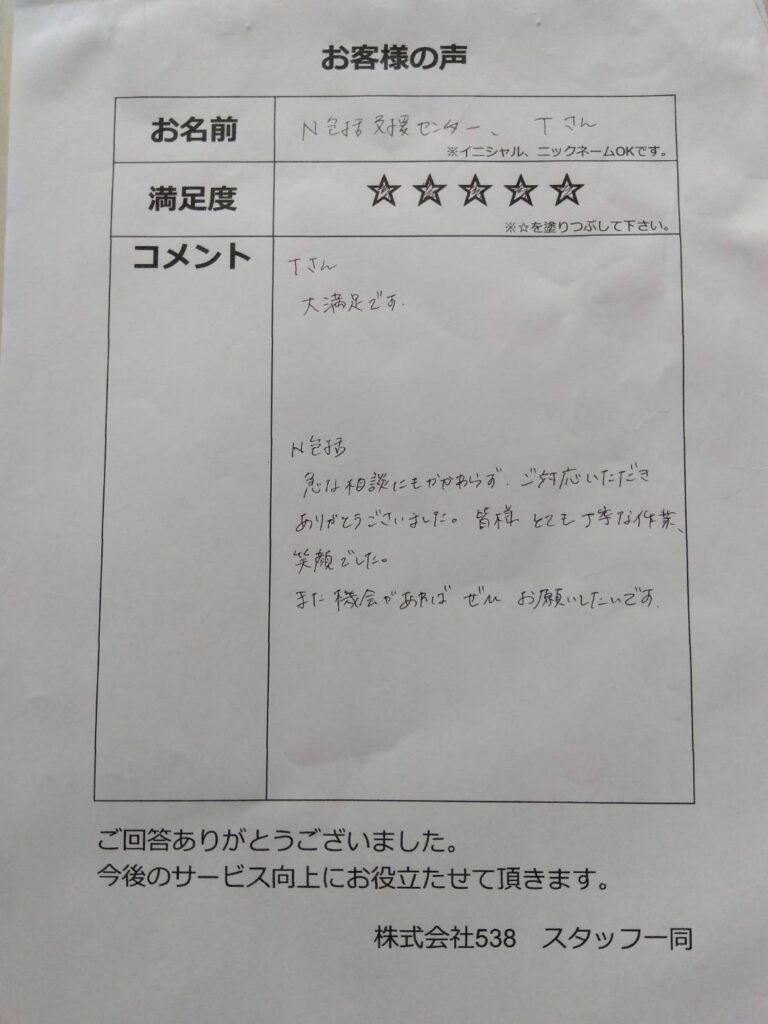 お客様の声
お名前
N包括支援センター、 Tさん
※イニシャル、ニックネームOKです。
満足度
☆☆☆☆☆
※☆を塗りつぶして下さい。
コメント
Tさん
大満足です.
N包括
急な相談にもかかわらず、ご対応いただき
ありがとうございました。皆様 とても丁寧な作業、
笑顔でした。
また機会があれば ぜひ お願いしたいです.
ご回答ありがとうございました。
今後のサービス向上にお役立たせて頂きます。
株式会社538 スタッフ一同